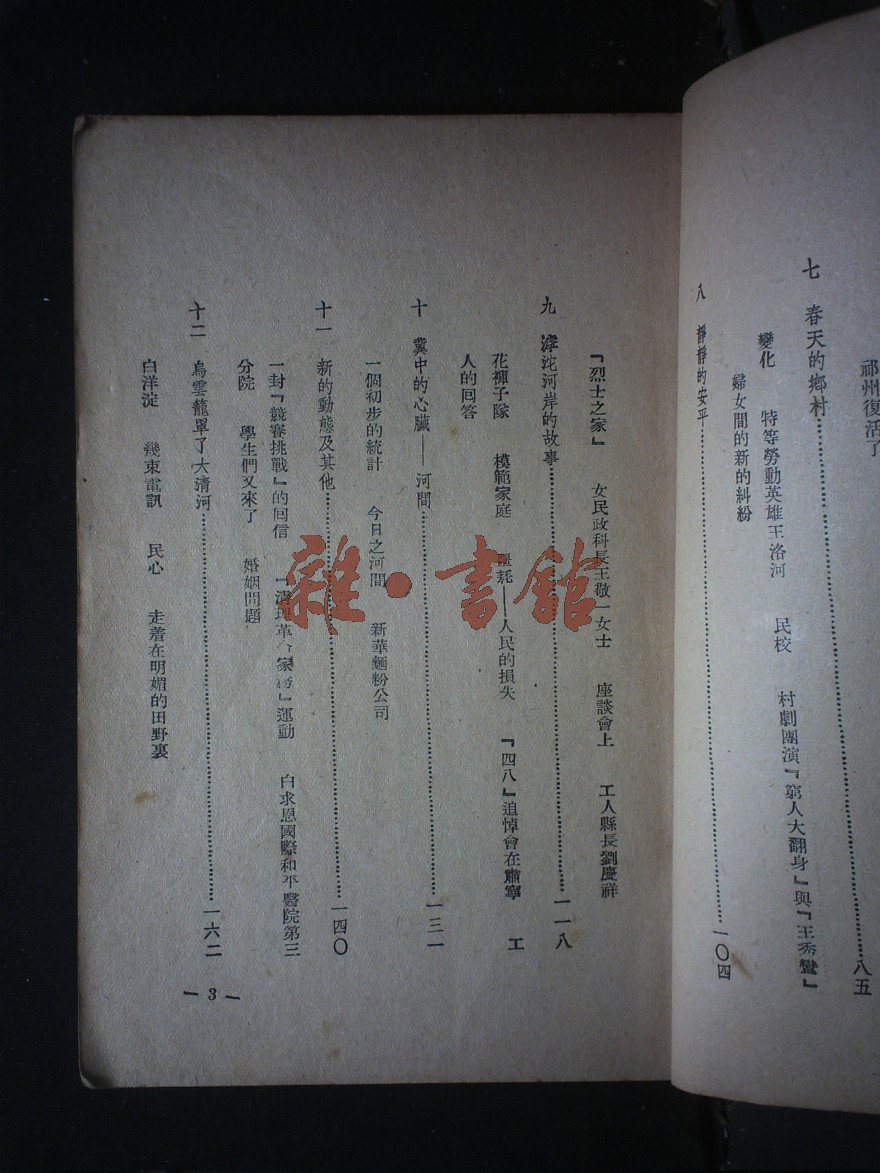 祁州復活了
七　春天的鄉村……八五
變化　特等勞動英雄王洛河　民校　村劇團演『窮人大翻身』與『王秀鸞』
婦女間的新的糾紛
八　靜靜的安平……一〇四
『烈士之家』　女民政科長王敬一女士　座談會上　工人縣長劉慶祥
九　滹沱河岸的故事……一一八
花褲子隊　模範家庭　噩耗——人民的損失　『四八』追悼會在肅寧　工
人的回答
十　冀中的心臟——河間……一三一
一個初步的統計　今日之河間　新華麵粉公司
十一　新的動態及其他……一四〇
一封『競賽挑戰』的回信　『清理革命家務』運動　白求恩國際和平醫院第三
分院　學生們又來了　婚姻問題
十二　烏雲籠罩了大清河……一六二
白洋淀　幾束電訊　民心　走着在明媚的田野裏
— 3 —
雜·書館